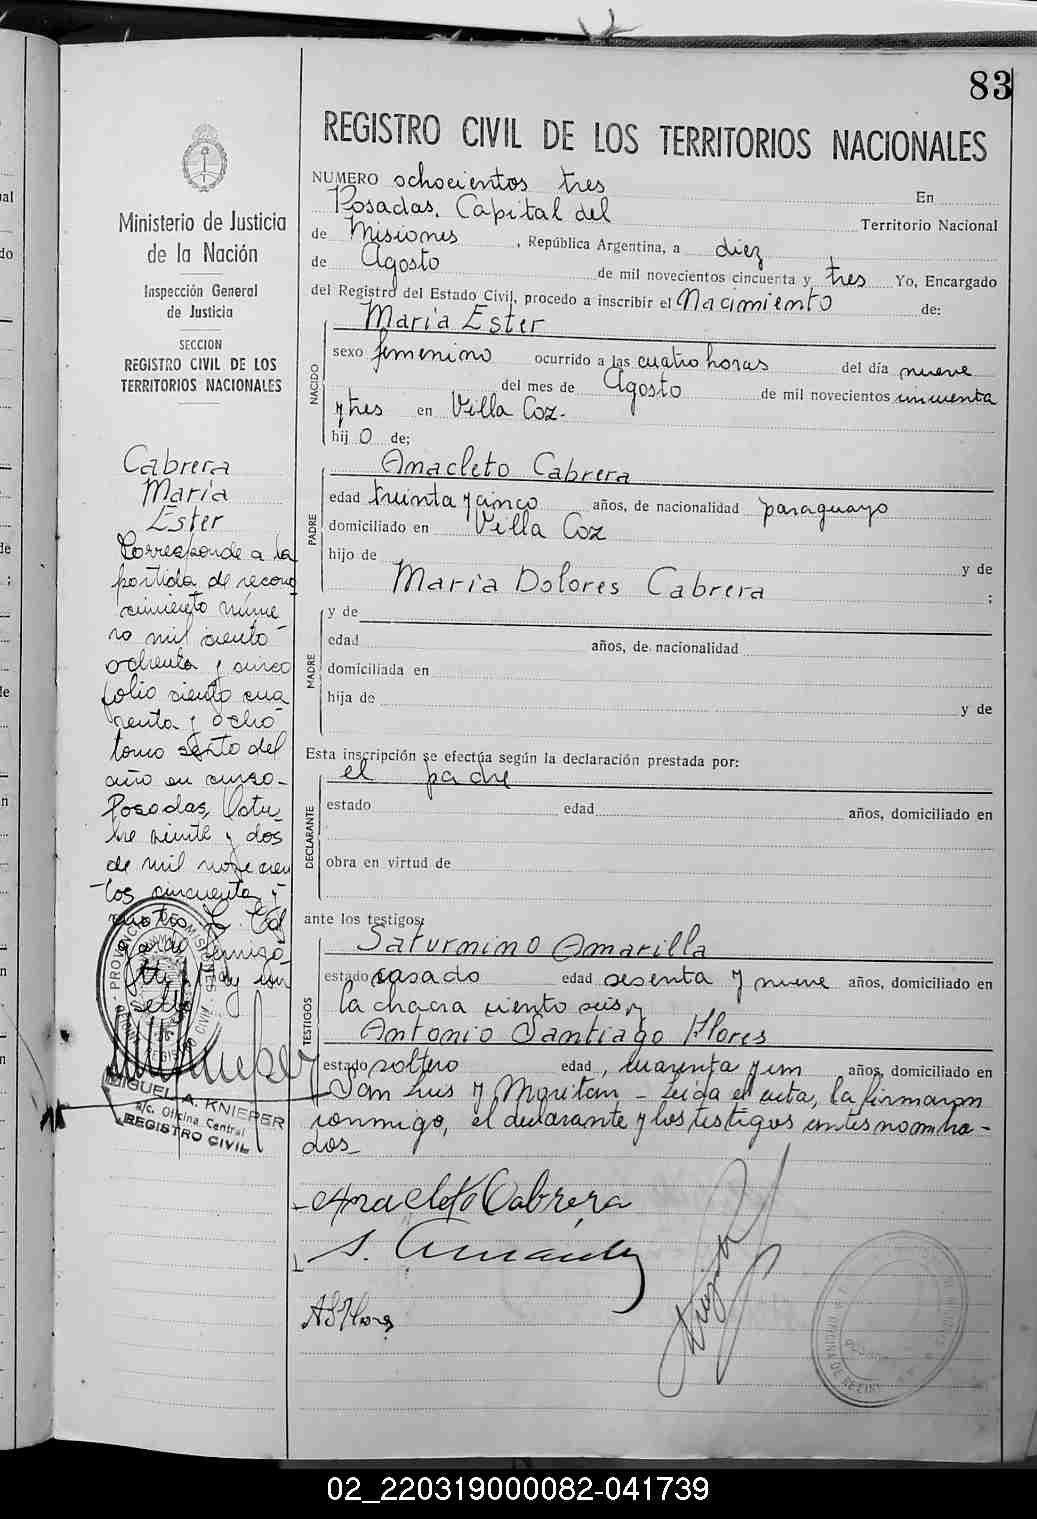 83
REGISTRO CIVIL DE LOS TERRITORIOS NACIONALES
NUMERO ochocientos tres En
Posadas, Capital del Territorio Nacional
de Misiones, República Argentina, a diez
de Agosto de mil novecientos cincuenta y tres Yo, Encargado
del Registro del Estado Civil, procedo a inscribir el Nacimiento de:
NACIDO
María Ester
sexo femenino ocurrido a las cuatro horas del día nueve
del mes de Agosto de mil novecientos cincuenta
y tres en Villa Coz.
hij o de;
PADRE
Anacleto Cabrera
edad treinta y cinco años, de nacionalidad paraguayo
domiciliado en Villa Coz
hijo de y de
María Dolores Cabrera ;
MADRE
y de
edad años, de nacionalidad
domiciliada en
hija de y de
Esta inscripción se efectúa según la declaración prestada por:
DECLARANTE
el padre
estado edad años, domiciliado en
obra en virtud de
ante los testigos:
TESTIGOS
Saturnino Amarilla
estado casado edad sesenta y nueve años, domiciliado en
la chacra ciento seis, y
Antonio Santiago Flores
estado soltero edad, cuarenta y un años, domiciliado en
San Luis y Moritan - Leída el acta, la firmaron
conmigo, el declarante y los testigos antes nombra-
dos-
Anacleto Cabrera
S. Amarilla
ASFlores
Ministerio de Justicia
de la Nación
Inspección General
de Justicia
SECCION
REGISTRO CIVIL DE LOS
TERRITORIOS NACIONALES
Cabrera
María
Ester
Corresponde a la
partida de recono
cimiento núme
ro mil ciento
ochenta y cinco
folio ciento cua
renta y ocho
tomo sexto del
año en curso-
Posadas, Octu-
bre veinte y dos
de mil novecien
-tos cincuenta y
PROVINCIA DE MISIONES
REGISTRO CIVIL
MIGUEL A. KNIEPER
a/c. Oficina Central
REGISTRO CIVIL
02_220319000082-041739